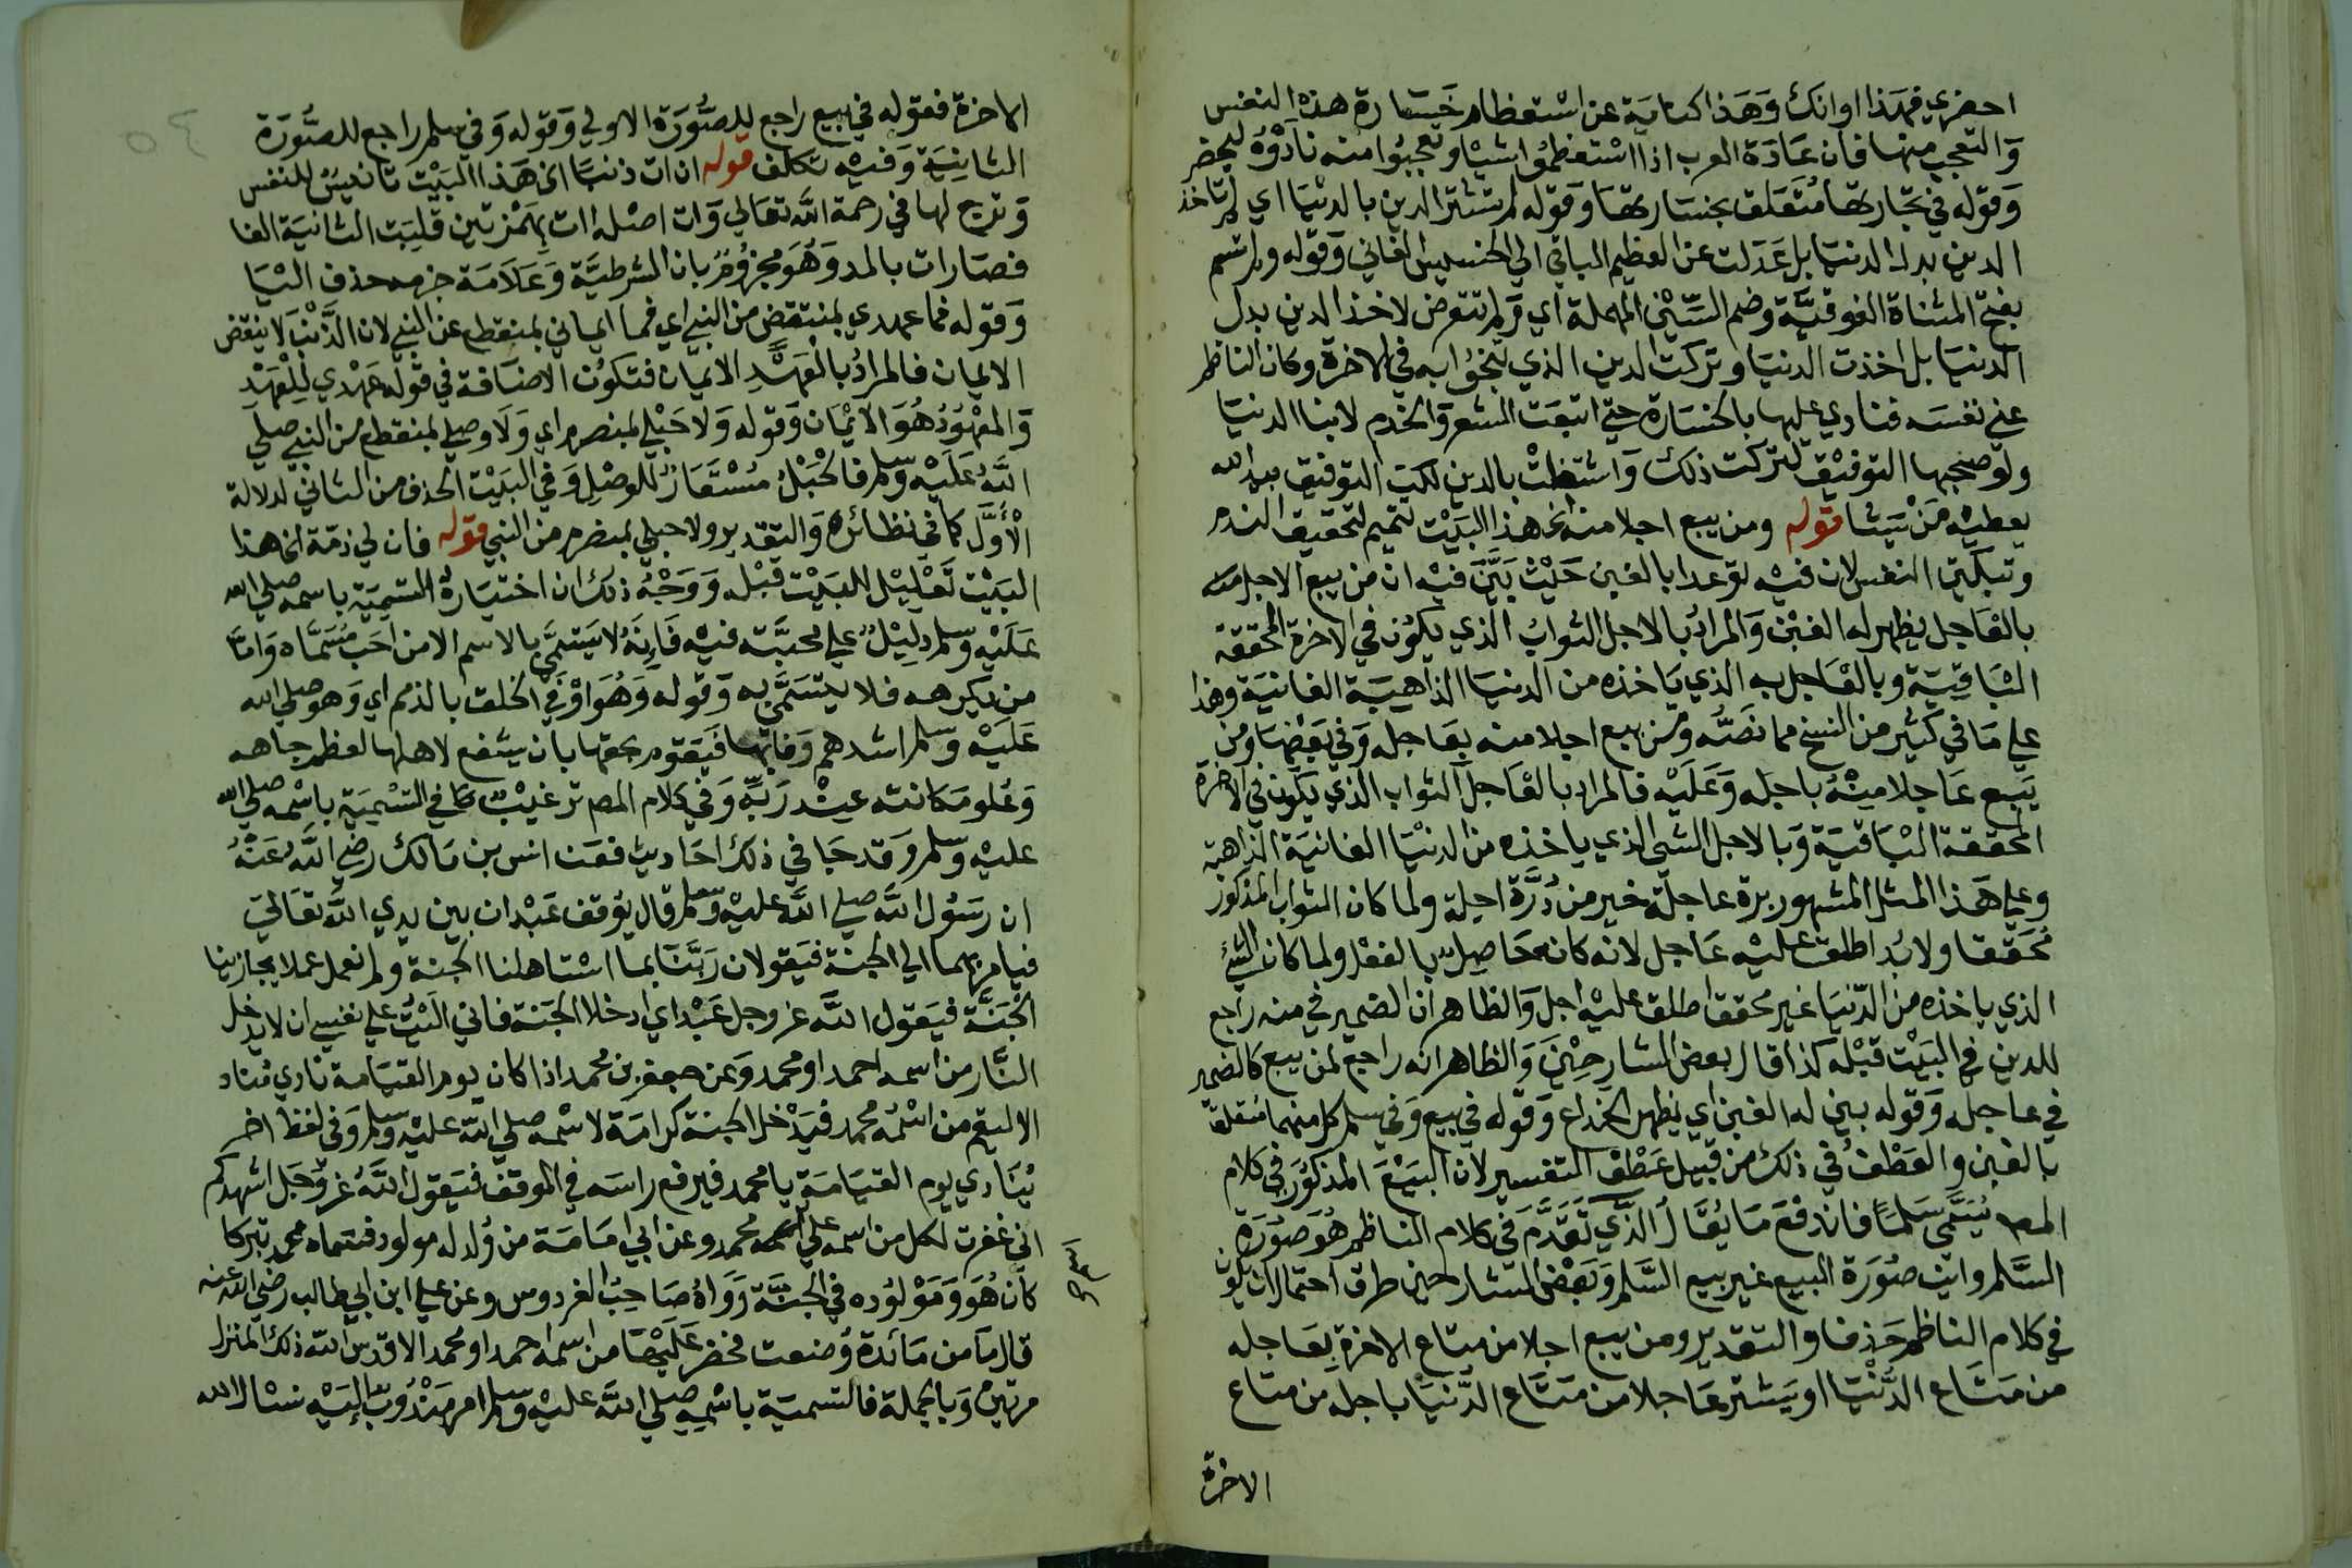 احضري فهذا اوانك وَهَذا كناية عن اشتعظام خَسَارة هذه النفس
وَالتعجب منها فان عَادَة العرب اذا اسْتعظموا شيْا وتعجبُوا منه نادَوْه ليحضر
وَقوله في تجارتها مُتَعَلق بخسَارتها وَقوله لم تشتر الدين بالدنيَا اي لم تاخذ
الدين بدل الدنيا بل عَدَلت عن العظيم الباقي الي الخسيس الفاني وَقوله ولم تسم
بفتح المثناة الفوقيَّة وضم السّيْن المهملة اي وَلم تتعرض لاخذ الدين بدل
الدنيَا بل اخذت الدنيَا وتركت الدين الذي تنجوُا به في الاخرة وكان الناظم
عني نفسَه فنادي عليها بالخسَارة حتي اتبعَت الشعر وَالخدم لابنا الدنيَا
ولَوْ صحبها التوفيْق لتركت ذلك وَاشتغلتْ بالدين لكن التوفيق بيد الله
يعطيْه مَنْ يَشا قوله ومن يبع اجلا منه الخ هذا البَيْت تتميم لتحقيق الندم
وتبكيت النفس لان فيْه توعدا بالغبن حَيْث بَيَّنَ فيْه ان من يبع الاجل منه
بالعَاجل يظهر له الغبْن وَالمرادُ بالاجل الثوابُ الذي يكوُن في الاخرة المحققة
البَاقِيَة وبالعَاجل به الذي يَاخذه من الدنيَا الذاهِبَة الفانيَة وهذا
علي مَا في كثير من النسخ مما نصَّه وَمن يبع اجلا منه بعَاجله وَفي بَعْضِهَا وَمن
يَبع عَاجلا مِنْهُ باجله وَعَلَيْه فالمراد بالعَاجل الثواب الذي يكون في الاخرة
المحققة البَاقيَة وَبالاجل الشئ الذي ياخذه من الدنْيَا الفانيَة الذاهبة
وعلي هَذا المثل المشهور برة عاجلة خير من دُرَّة اجلة ولما كان الثواب المذكور
مُحَقَّقا ولابُد اطلق عليْه عَاجل لانه كانه حَاصِلٌ بالفعْل ولما كان الشئ
الذي ياخذه من الدّنيَا غير محقق اطلق عليْه اجل وَالظاهر ان الضمير في منه راجع
للدين في البَيْت قبْله كذا قال بعض الشارحِيْنَ وَالظاهر انه راجع لمن يبع كالضمير
في عاجله وَقوله يبين له الغبن اي يظهر الخداع وَقوله في بيع وَفي سلم كل منهما متعلق
بالغبن والعَطْفُ في ذلك من قبيل عَطْف التفسير لان البَيْعَ المذكوُر في كلام
المصـ يُسَمَّي سَلَمًا فاندفعَ مَا يُقَالُ الذَّي تَقَدَّمَ في كلام الناظم هُوَ صوُرَة
السَّلم وايت صوُرَة البيع غير بيع السَّلم وَبَعْض الشارحين طرق احتمال ان يكون
في كلام الناظم حَذفا والتقدير ومن يبع اجلا من متاع الاخرة بعَاجله
من مَتَاع الدُّنْيَا او يَشتر عَاجلا من مَتَاع الدَّنيَا باجله من متاع
الاخرة
الاخرة فقوله في بيع راجع للصُّوَرَة الاولي وَقوله وَفي سلم راجع للصُّوَرَة
الثانِيَة وَفيْه تكلف قوله ان ات ذنبًا الخ هَذا البَيْت تانيسٌ للنفس
وَترج لها في رحمة الله تعَالي وَات اصْله اات بِهَمْزتين قلِبَت الثانيَة الفا
فصَارات بالمد وَهُوَ مجزوُمٌ بان الشرطيَّة وَعَلَامَة جزمه حذف اليَا
وَقوله فما عهدي بمنتقض من النبي اي فما ايماني بمنقطع عن النبي لان الذَّنْبَ لا ينقض
الايمان فالمرادُ بالعَهْدِ الايمان فتكوُن الاضَافة في قوله عَهْدي لِلْعَهْدِ
وَالمعْهوُدُ هُوَ الايْمَان وَقوله وَلا حَبْلي بمنصرم اي وَلَا وصلي بمنقطع من النبي صلي
اللهُ عَلَيْه وسلم فالحْبَلُ مُسْتَعَارٌ للوصْلِ وَفي البَيْت الحذف من الثاني لدلالة
الْأَوَّل كما في نظائره وَالتقدير ولا حبلي بمنصرم من النبي قوله فان لي ذمّة الخ هذا
البَيْت تَعْلِيْل للبَيْت قبْله وَوَجْهُ ذلك ان اختيَارَهُ التسمِيَة باسمه صلي الله
عَلَيْه وسلم دلِيْلٌ علي محبَّته فيْه فَإِنَهُ لا يَتسَمَّي بالاسم الا من احَب مُسَمَّاه وَامَّا
من يكرهه فلا يتسَمَّي به وَقوله وَهُوَ اوْفي الخلق بالذمم اي وَهو صلي الله
عَلَيْه وَسلم اشدهم وَفا بها فيَقوم بحقها بان يشفع لاهلها لعظم جاهه
وَعُلو مَكانته عِنْد رَبِّه وَفي كلام المصـ ترغيْبٌ في التسْمِيَة باسْمه صلي الله
عليْه وَسلم وَقد جَا في ذلك احَاديث فعَن انس بن مَالك رضي اللهُ عَنْهُ
ان رَسُول الله صلي الله عليْه وَسلم قال يوُقف عَبْدان بين يدي اللهُ تعَالي
فيامر بهما الي الجنة فيَقولان رَبَّنَا بما اسْتاهلنا الجنة ولم نعمل عملا يجازينا
الجَنَّة فيَقول الله عز وجل عَبْداي ادخلا الجَنة فاني الَيْتُ علي نفسي ان لا يدخل
النَّار من اسمه احمد او محمد وَعَن جعفر بن محمد اذا كان يوم القيَامة نادي مُناد
الا ليقم من اسْمُه محمد فيَدْخل الجنة كرامَة لاسْمه صلي الله عليْه وسلم وَفي لفظ اخر
يُنَادي يوم القيَامَة يا محمد فيرفع راسَه في الموقف فيَقول اللهُ عَزّ وَجَل اشهدكم
اني غفرت لكل من اسمه علي اسمه محمد وعن ابي امَامَة من وُلد له مولود فسَماه محمد تبركا
كان هُوَ وَمَوْلوُده في الجنَّة رَوَاهُ صَاحِبُ الفردوس وعن علي ابن ابي طالب رضي الله عنه
قال مَا من مَائدة وُضعت فحضر عَلَيْهَا من اسمه احمد او محمد الا قدس الله ذلك المنزل
مرتين وَبالجملة فالتسميَة باسْمه صلي الله عليْه وَسلم امر مَنْدُوبٌ إليْه نسْال الله